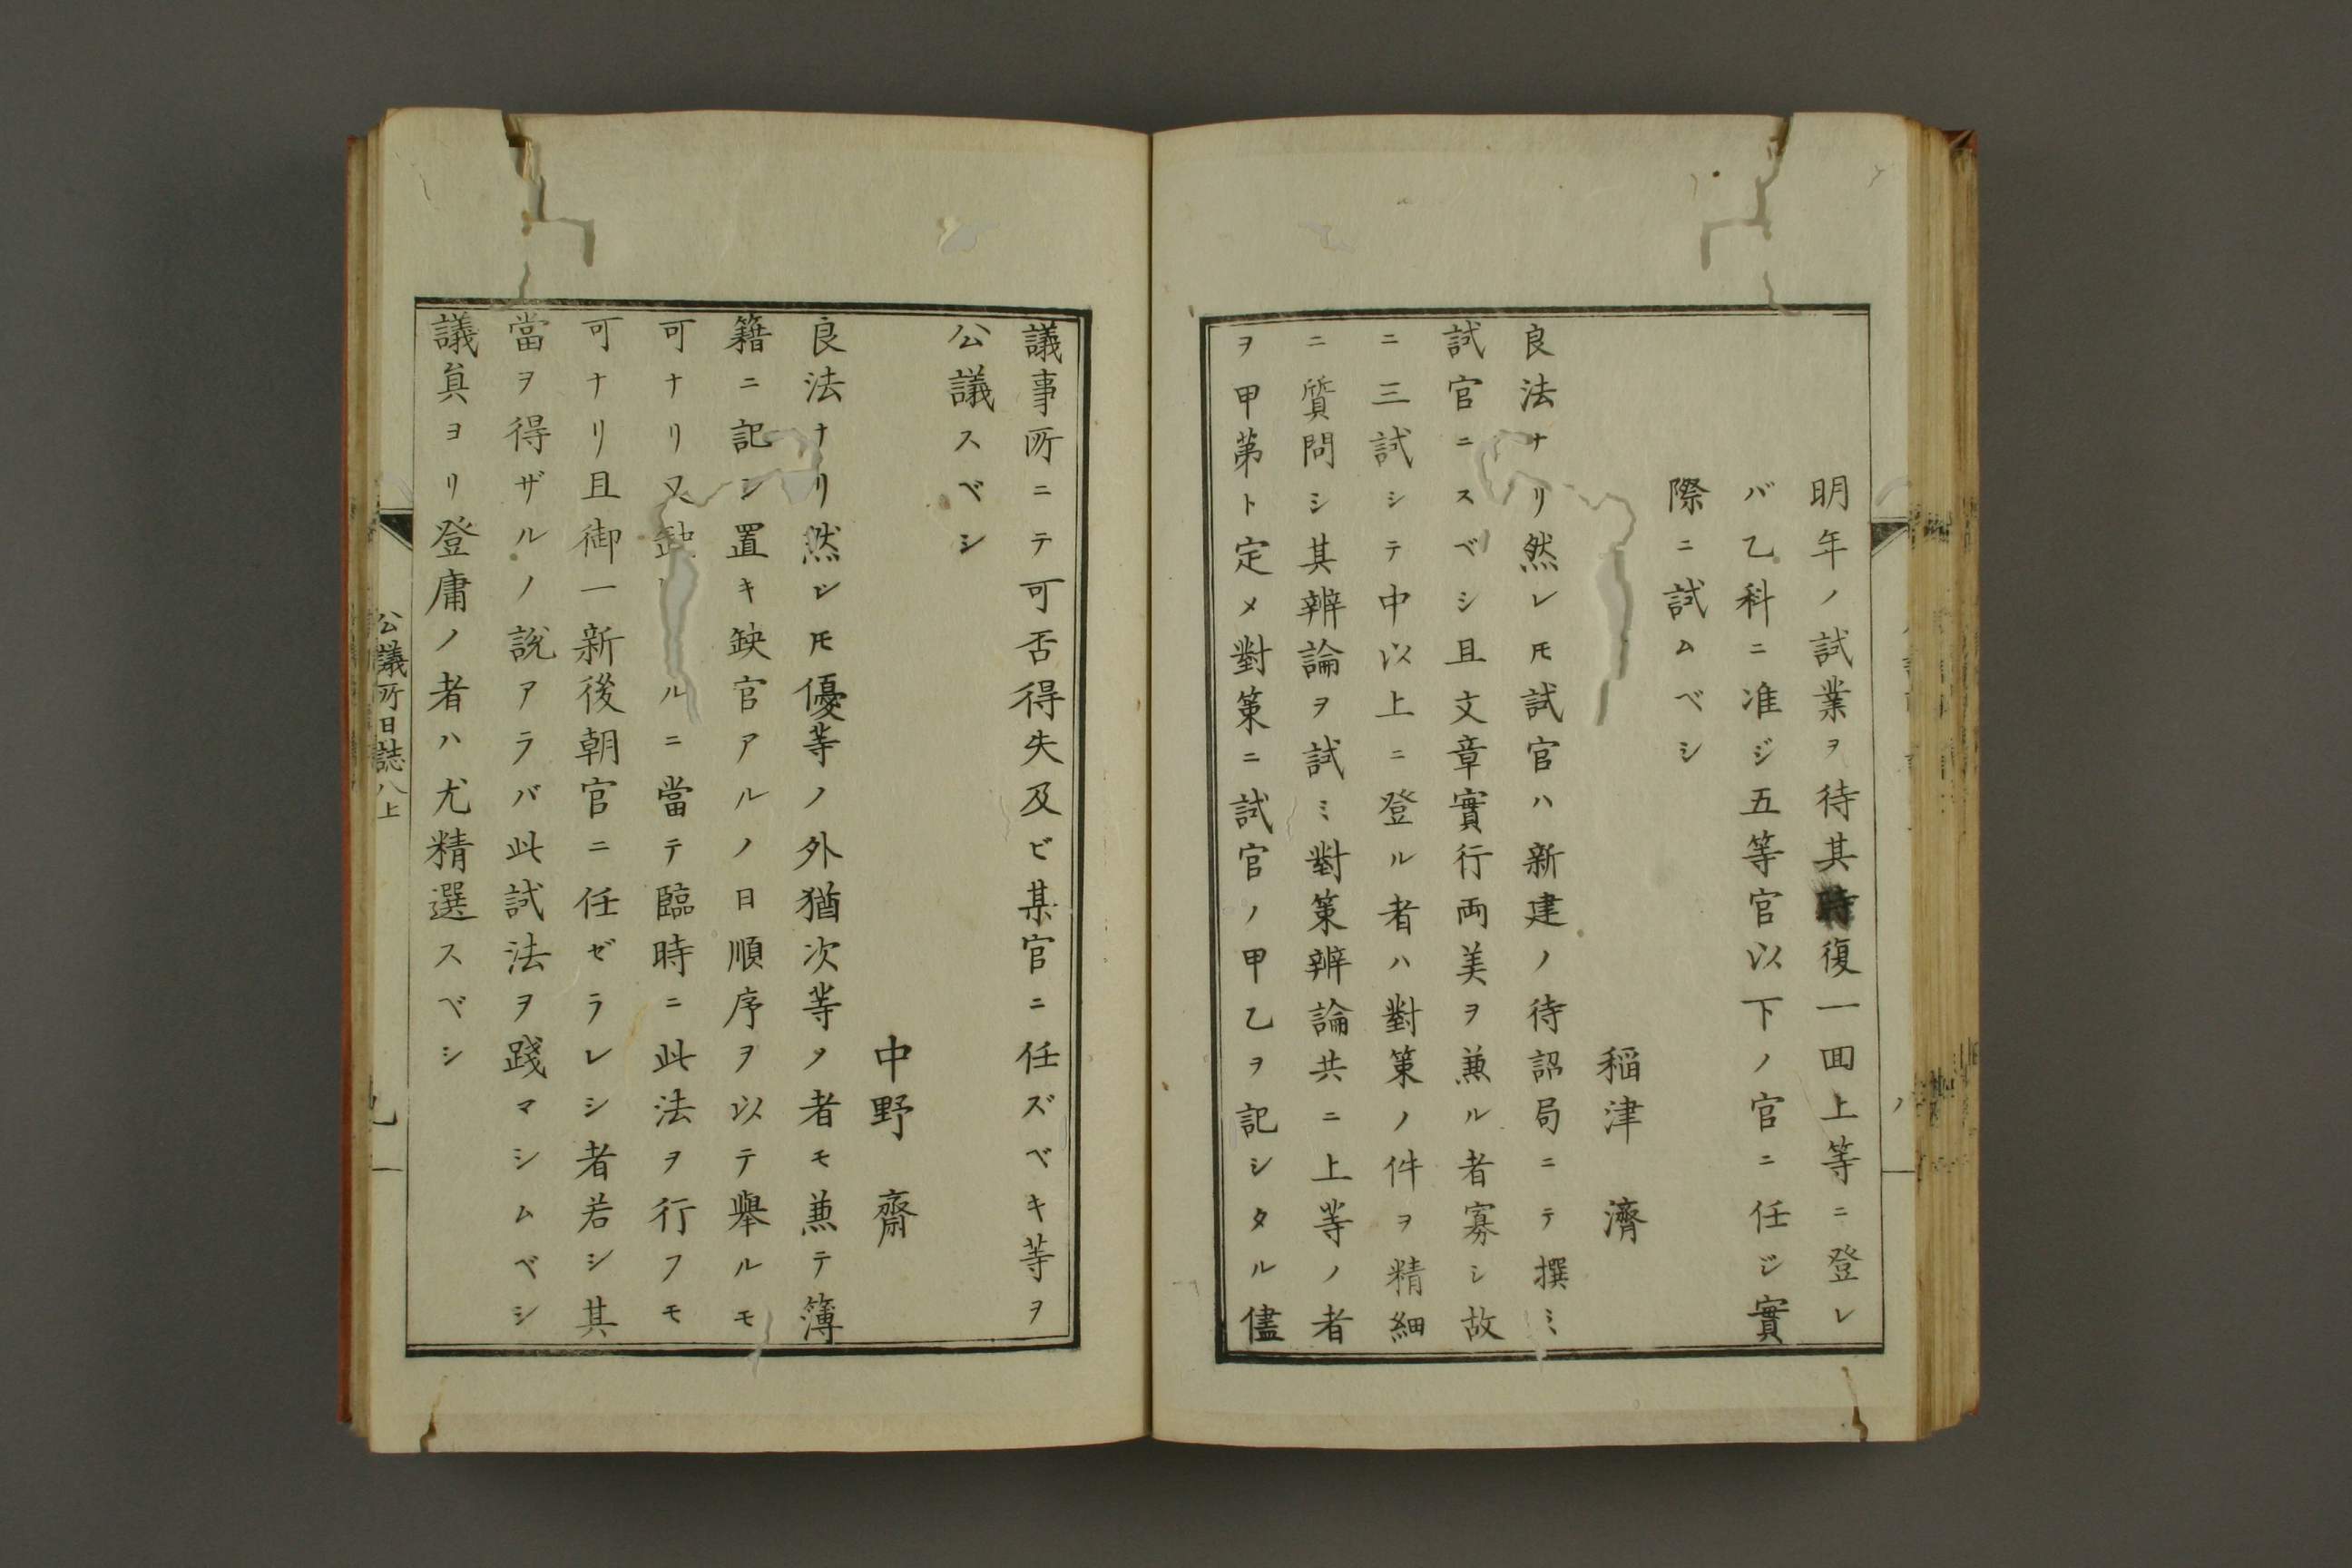 明年ノ試業ヲ待其時復一囬上等ニ登レ
バ乙科ニ准ジ五等官以下ノ官ニ任ジ實
際ニ試ムベシ
稲津 濟
良法ナリ然レ𪜈試官ハ新建ノ待詔局ニテ撰ミ
試官ニスベシ且文章實行両美ヲ兼ル者寡シ故
ニ三試シテ中以上ニ登ル者ハ對策ノ件ヲ精細
ニ質問シ其辨論ヲ試ミ對策辨論共ニ上等ノ者
ヲ甲苐ト定メ對策ニ試官ノ甲乙ヲ記シタル儘
議事所ニテ可否得失及ビ某官ニ任ズベキ等ヲ
公議スベシ
中野 齋
良法ナリ然レ𪜈優等ノ外猶次等ノ者モ兼テ簿
籍ニ記シ置キ缺官アルノ日順序ヲ以テ舉ルモ
可ナリ又缺ルニ當テ臨時ニ此法ヲ行フモ
可ナリ且御一新後朝官ニ任ゼラレシ者若シ其
當ヲ得ザルノ說アラバ此試法ヲ踐マシムベシ
議員ヨリ登庸ノ者ハ尤精選スベシ
公議所日誌八上